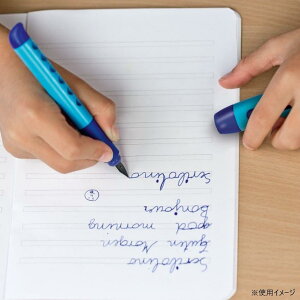 Scribolino
Guten Morgen
good morning
Bonjour
Scribolino
※使用イメージ